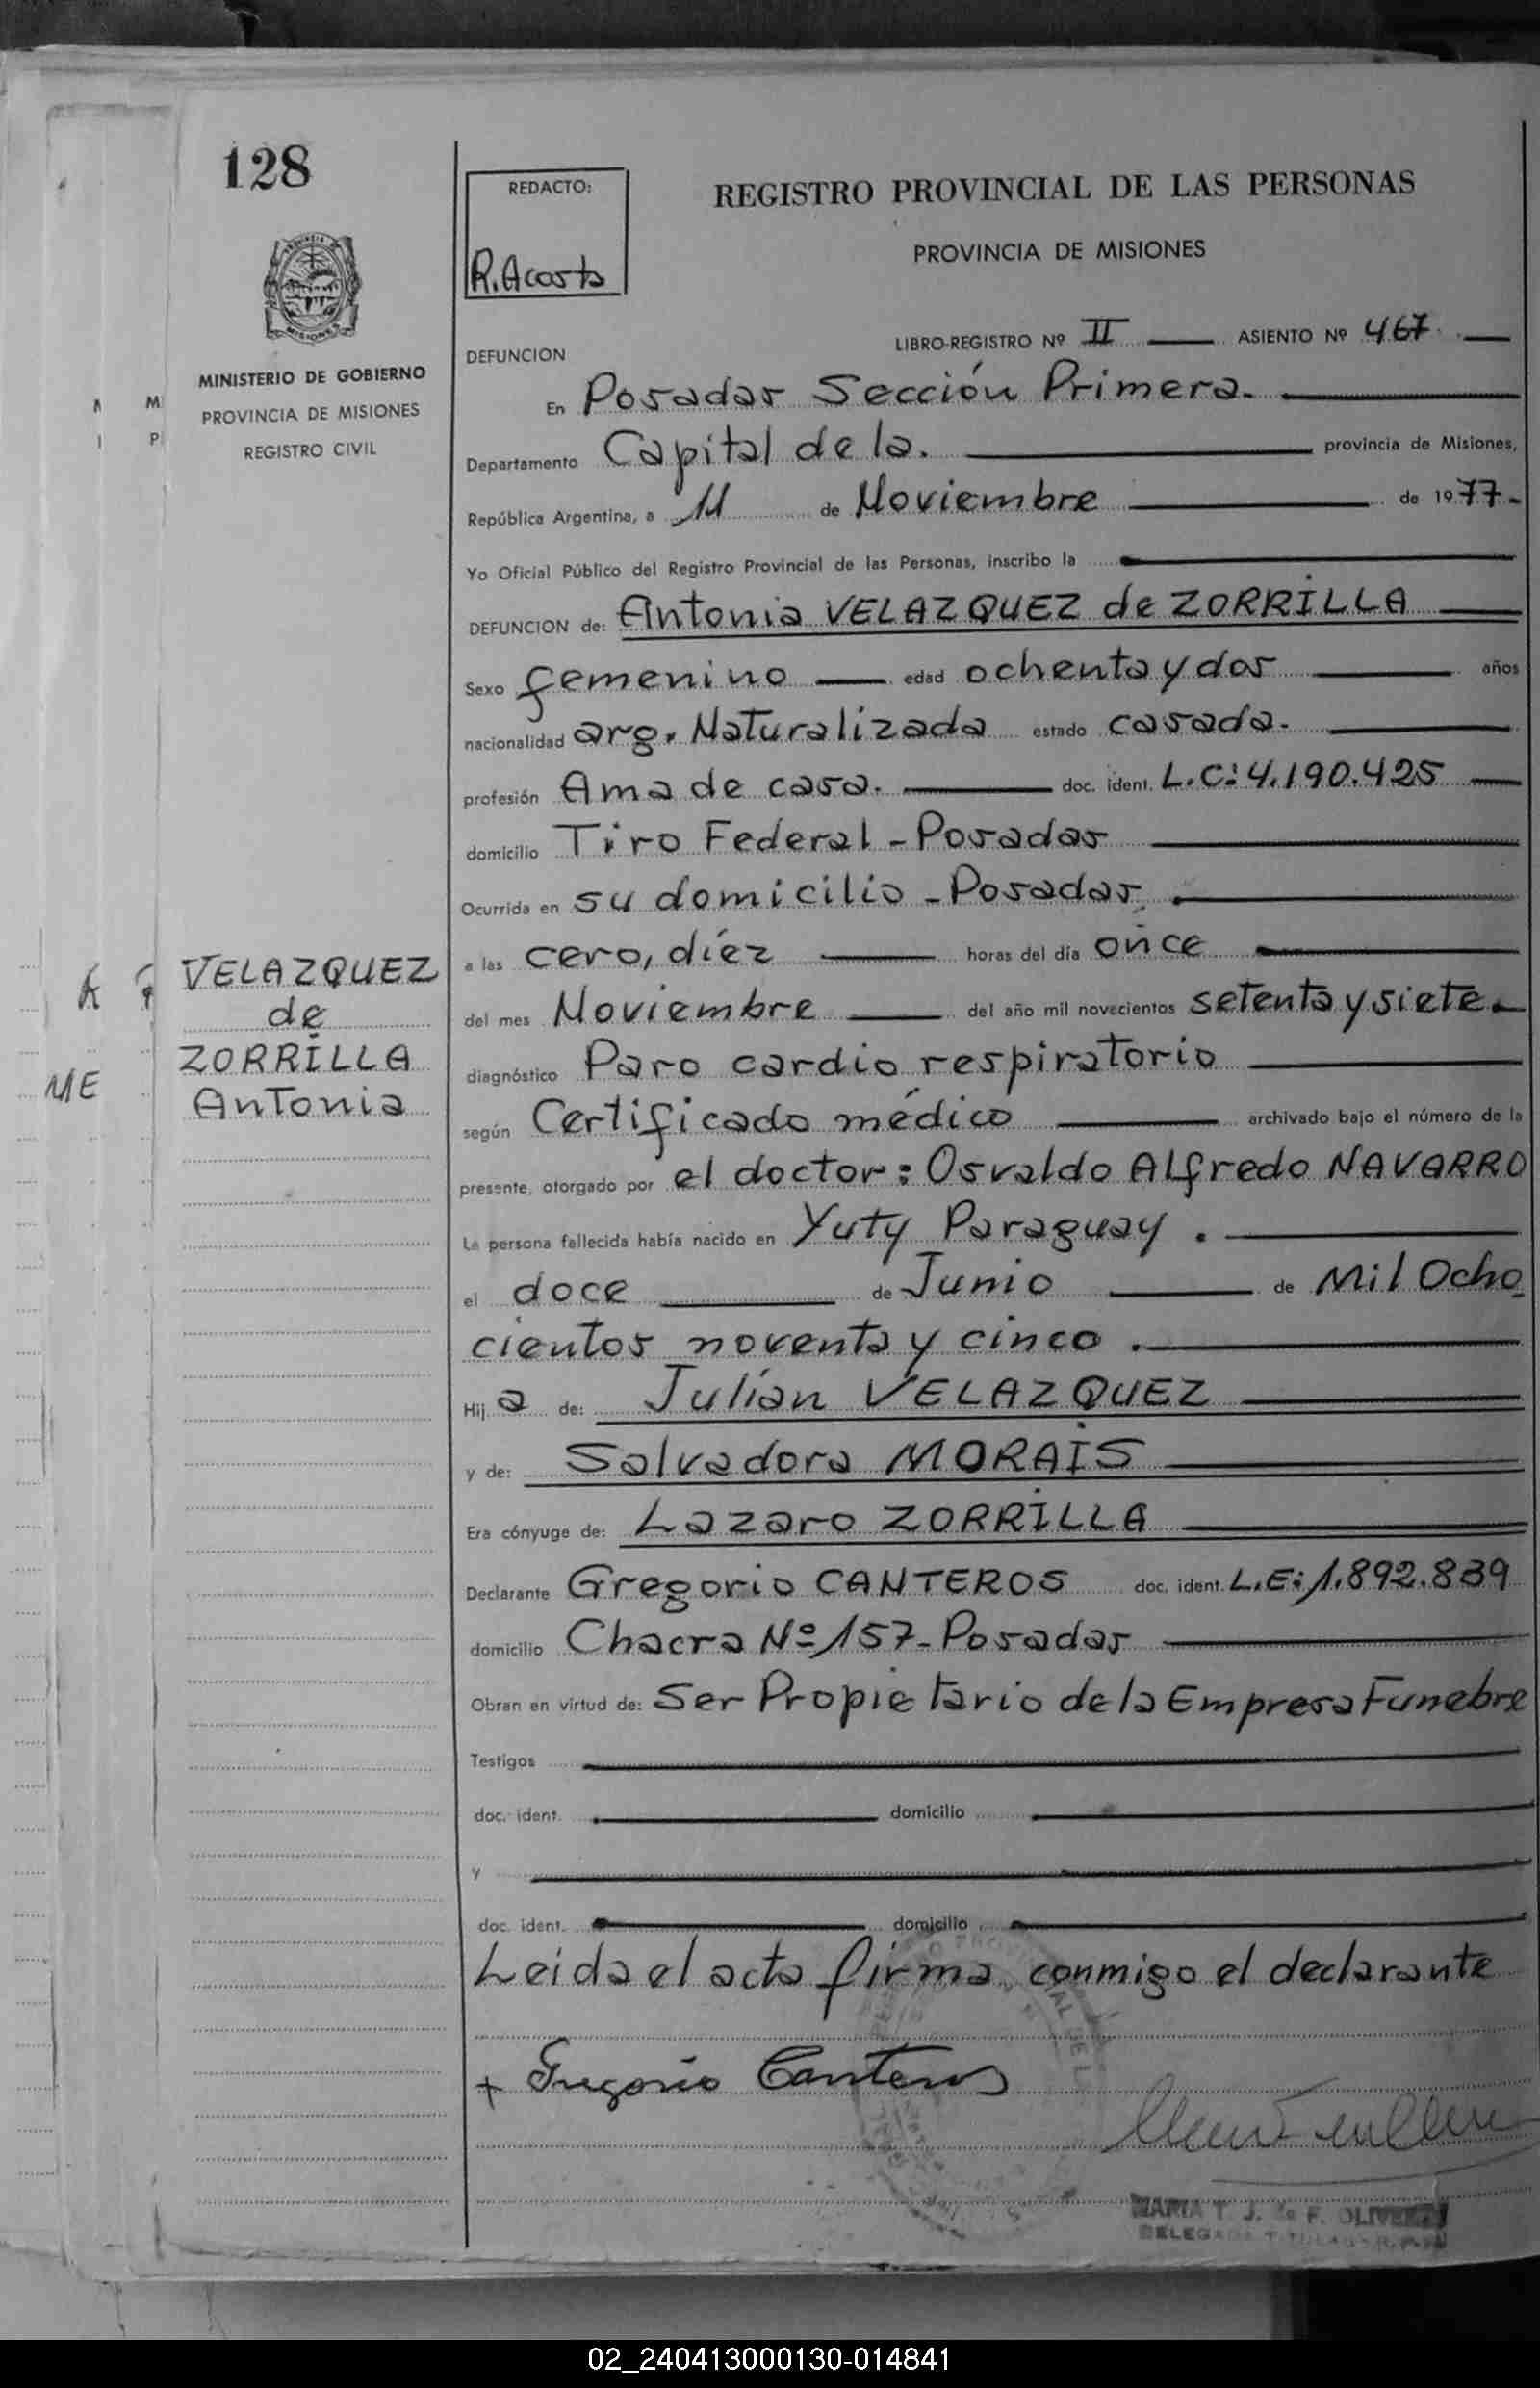 128
REDACTO:
R. Acosta
REGISTRO PROVINCIAL DE LAS PERSONAS
PROVINCIA DE MISIONES
MINISTERIO DE GOBIERNO
PROVINCIA DE MISIONES
REGISTRO CIVIL
LIBRO-REGISTRO Nº II ASIENTO Nº 467
DEFUNCION
En Posadas Sección Primera.
Departamento Capital de la. provincia de Misiones,
República Argentina, a 11 de Noviembre de 1977.
Yo Oficial Público del Registro Provincial de las Personas, inscribo la
DEFUNCION de: Antonia VELAZQUEZ de ZORRILLA
Sexo femenino edad ochenta y dos años
nacionalidad arg. Naturalizada estado casada.
profesión Ama de casa. doc. ident. L.C: 4.190.425
domicilio Tiro Federal - Posadas
Ocurrida en su domicilio - Posadas.
a las cero, diez horas del día once
del mes Noviembre del año mil novecientos setenta y siete.
diagnóstico Paro cardio respiratorio
según Certificado médico archivado bajo el número de la
presente, otorgado por el doctor: Osvaldo Alfredo NAVARRO
La persona fallecida había nacido en Yuty Paraguay.
el doce de Junio de Mil Ocho
cientos noventa y cinco.
Hij a de: Julían VELAZQUEZ
y de: Salvadora MORAIS
Era cónyuge de: Lazaro ZORRILLA
Declarante Gregorio CANTEROS doc. ident. L.E: 1.892.839
domicilio Chacra Nº 157 - Posadas
Obran en virtud de: Ser Propietario de la Empresa Funebre
Testigos
doc. ident. domicilio
y
doc. ident. domicilio
Leida el acta firma conmigo el declarante
+ Gregorio Canteros
MARIA T. J. de F. OLIVERA
VELAZQUEZ
de
ZORRILLA
Antonia
ME
02_240413000130-014841